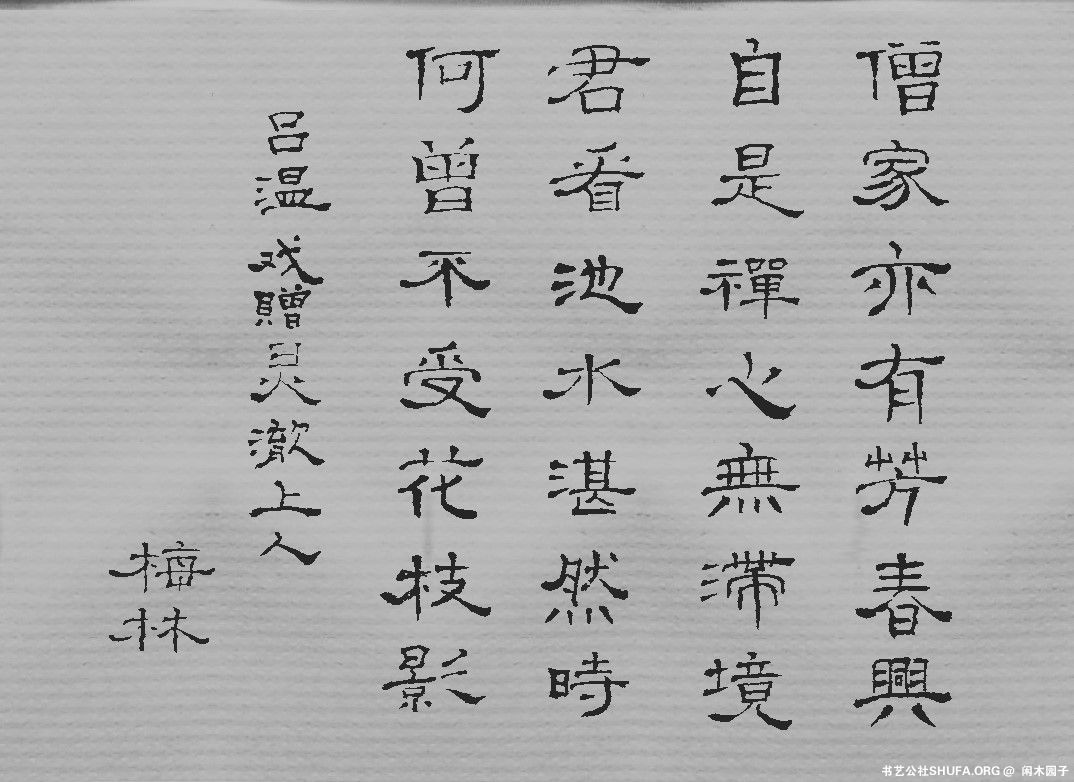 僧家亦有芳春興
自是禪心無滯境
君看池水湛然時
何曾不受花枝影
吕温戏贈灵澈上人
梅林
书艺公社SHUFA.ORG @ 闲木园子